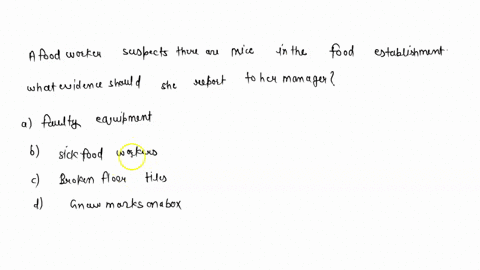 A food worker suspects there are mice in the food establishment.
what evidence should she report to her manager?
a) faulty equipment
b) sick food workers
c) Broken floor tiles
d) Gnaw marks on a box